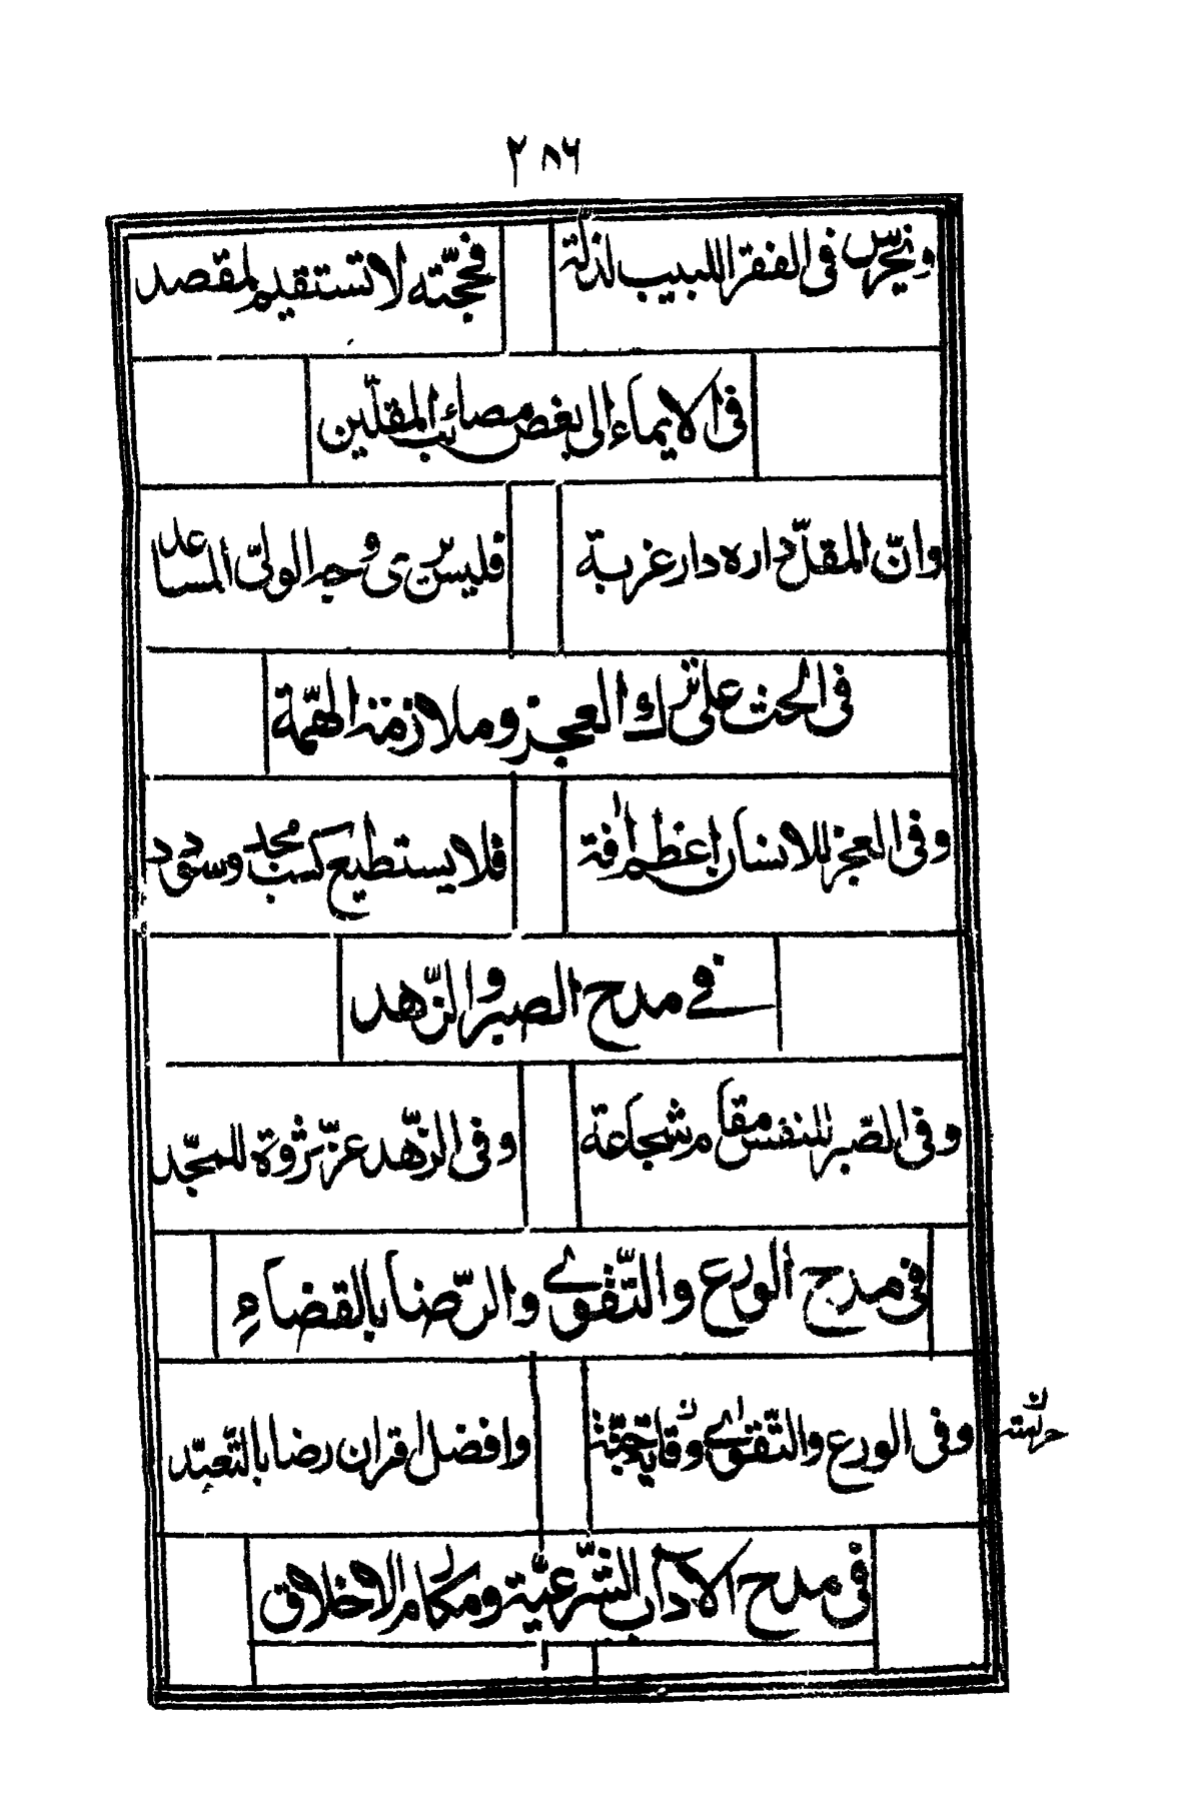 ٢٨٦
ويخرس فى الفقر اللبيب لذلة فحجّته لا تستقيم لمقصد
فى الايماء الى بعض مصائب المقلّين
وانّ المقلّ داره دار غربة فليس يرى وجه الولىّ المساعد
فى الحث على ترك العجز وملازمة الهمّة
وفى العجز للانسان اعظم افة فلا يستطيع كسب مجد وسودد
فى مدح الصبر والزّهد
وفى الصّبر للنفس مقام شجاعة وفى الزّهد عزّ ثروة للمجّد
فى مدح الورع والتّقوى والرّضا بالقضاء
وفى الورع والتّقوى وقاية جنّة وافضل اقران رضا بالتّعبّد
فى مدح الاداب الشّرعيّة ومكارم الاخلاق